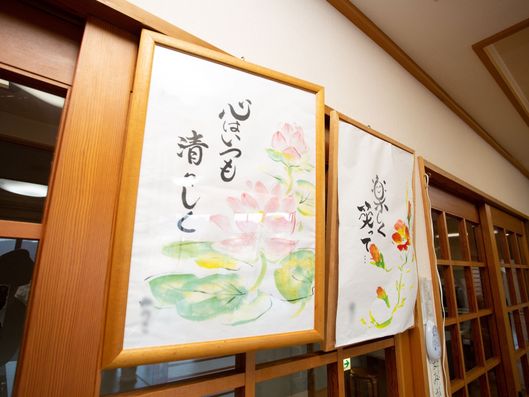 心はいつも
清らしく
楽しく
笑って…